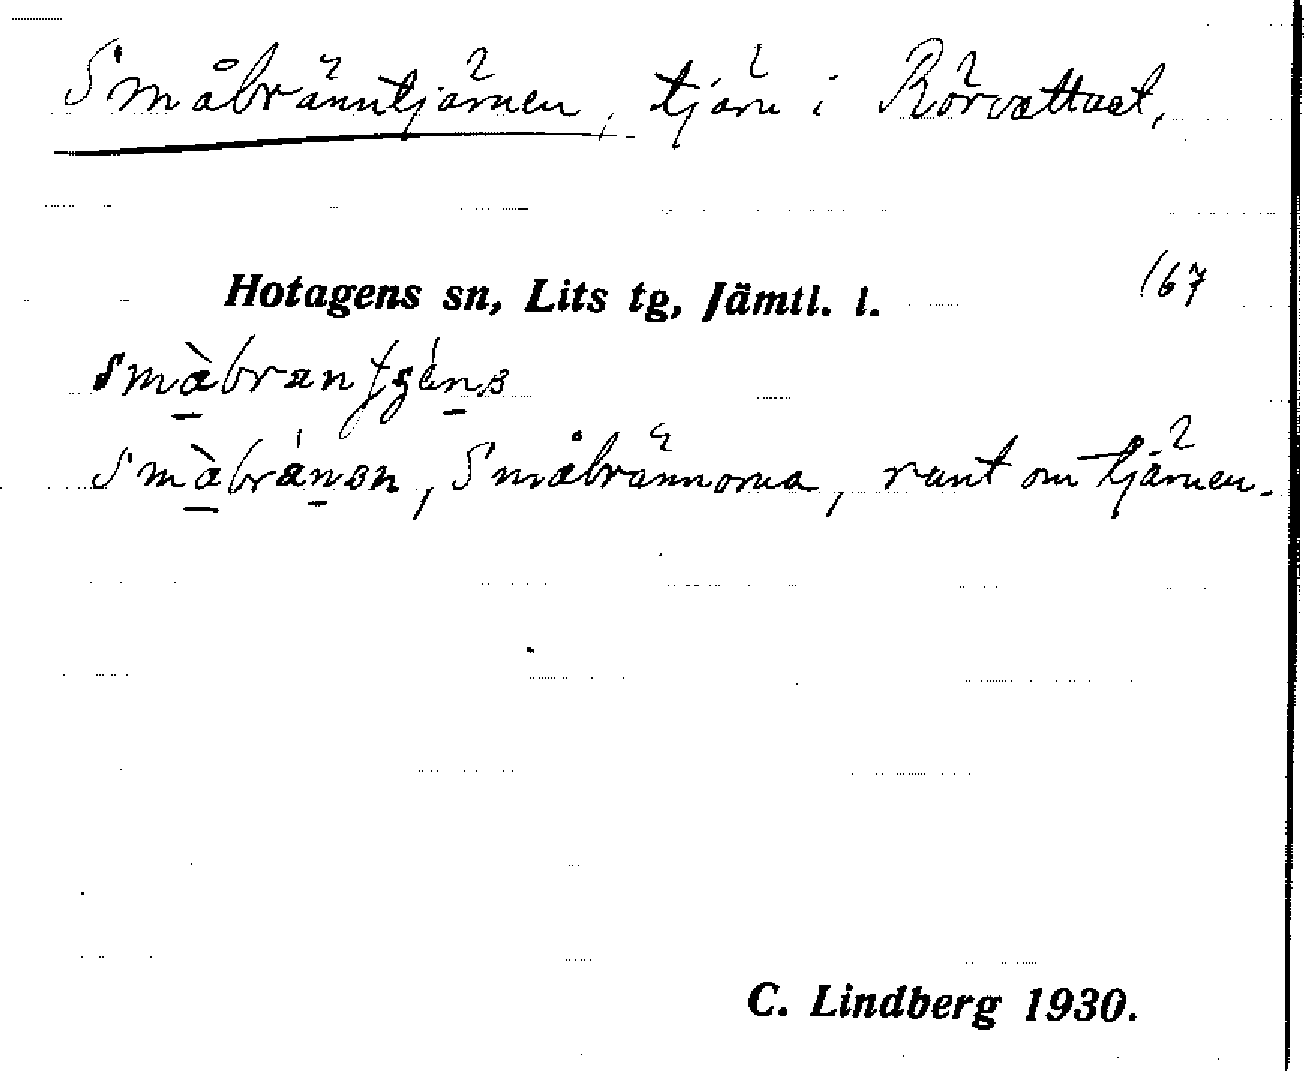 Småbränntjärnen, tjärn i Rörvattnet,
Hotagens sn, Lits tg, Jämtl. l. 167
Småbrännorna, runt om tjärnen.
C. Lindberg 1930.